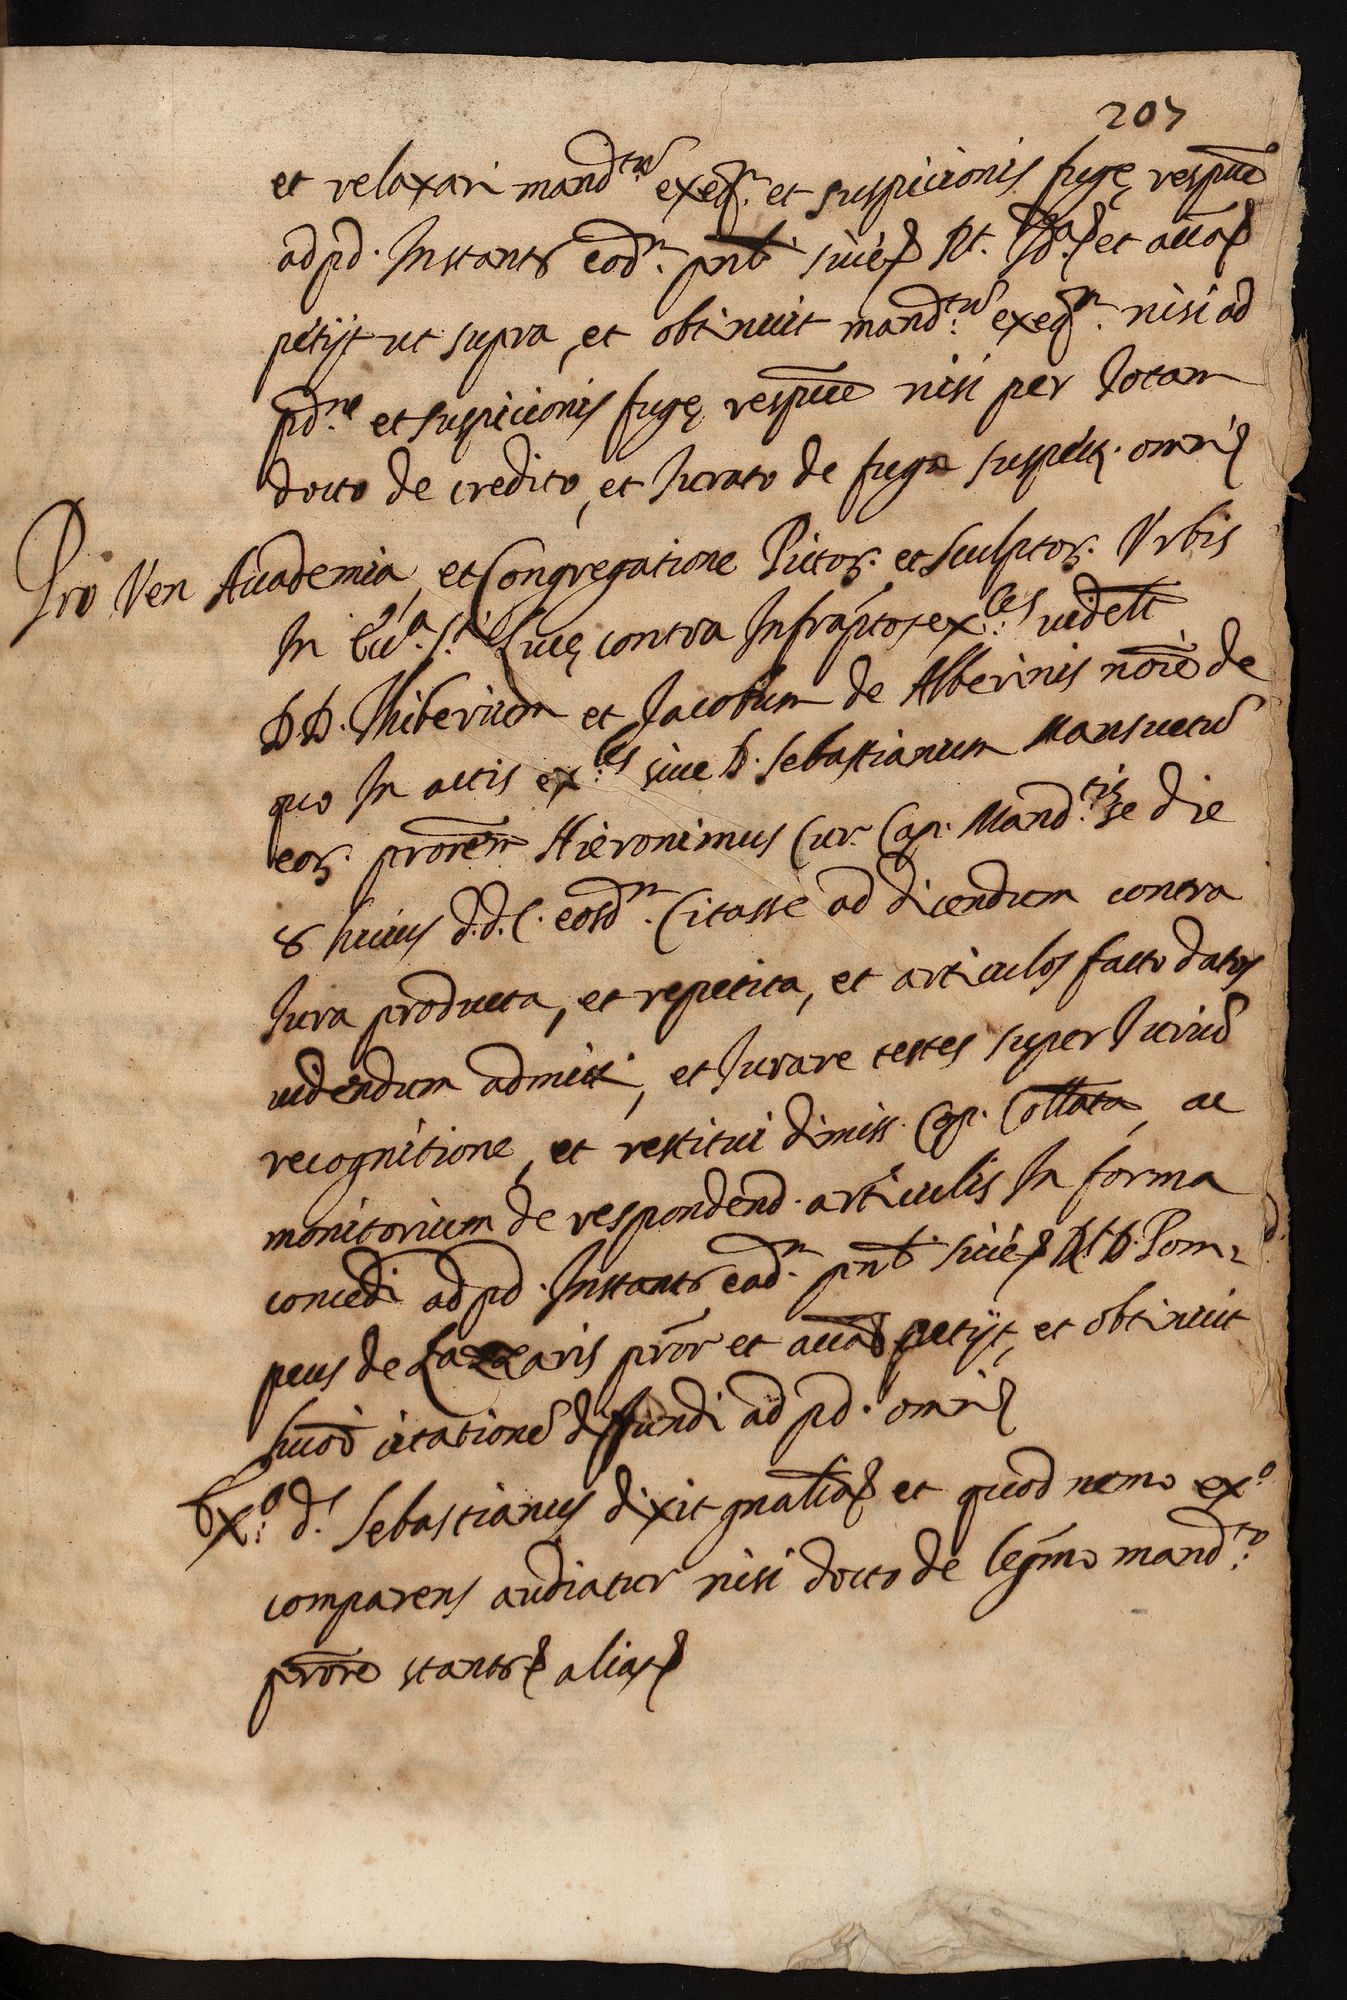 207
et relaxari mand.tum exeq.m et suspicionis fugę respue
ad pd. Instants eod.m pntb sive
petijt ut supra, et obtinuit mand.tum exeq.m nisi ad
pd.ne et suspicionis fugę respue nisi per Iotam
docto de credito, et Iurato de fuga suspic. omni
Pro Ven Accademia, et Congregatione Pictor. et sculptor. Vrbis
In S.ti Lucę contra Infraptos ex.tes videlt
DD. Thiberium et Jacobum de Alberinis noie de
quo In actis ex.tes sive D. Sebastianum Mansuetū
eor. prorem Hieronimus Cur. Cap. Mand.tis se die
8 huius d.d.C. eosd.m Citasse ad dicendum contra
Iura producta, et repetita, et articulos facto datos
videndum admitti, et Iurare testes super Iuriū
recognitione, et restitui dimiss. Cop. Collata, ac
monitorium de respondend. articulis In forma
concedi ad pd. Instants ead.m pntb sive D. Pom=
peus de Lazzaris pror et petijt, et obtinuit
huōi citationē diffundi ad pd. omni
Ex.o d.s Sebastianus dixit gnalia et quod nemo ex.o
comparens audiatur nisi docto de legmo mand.to
prore stants alias